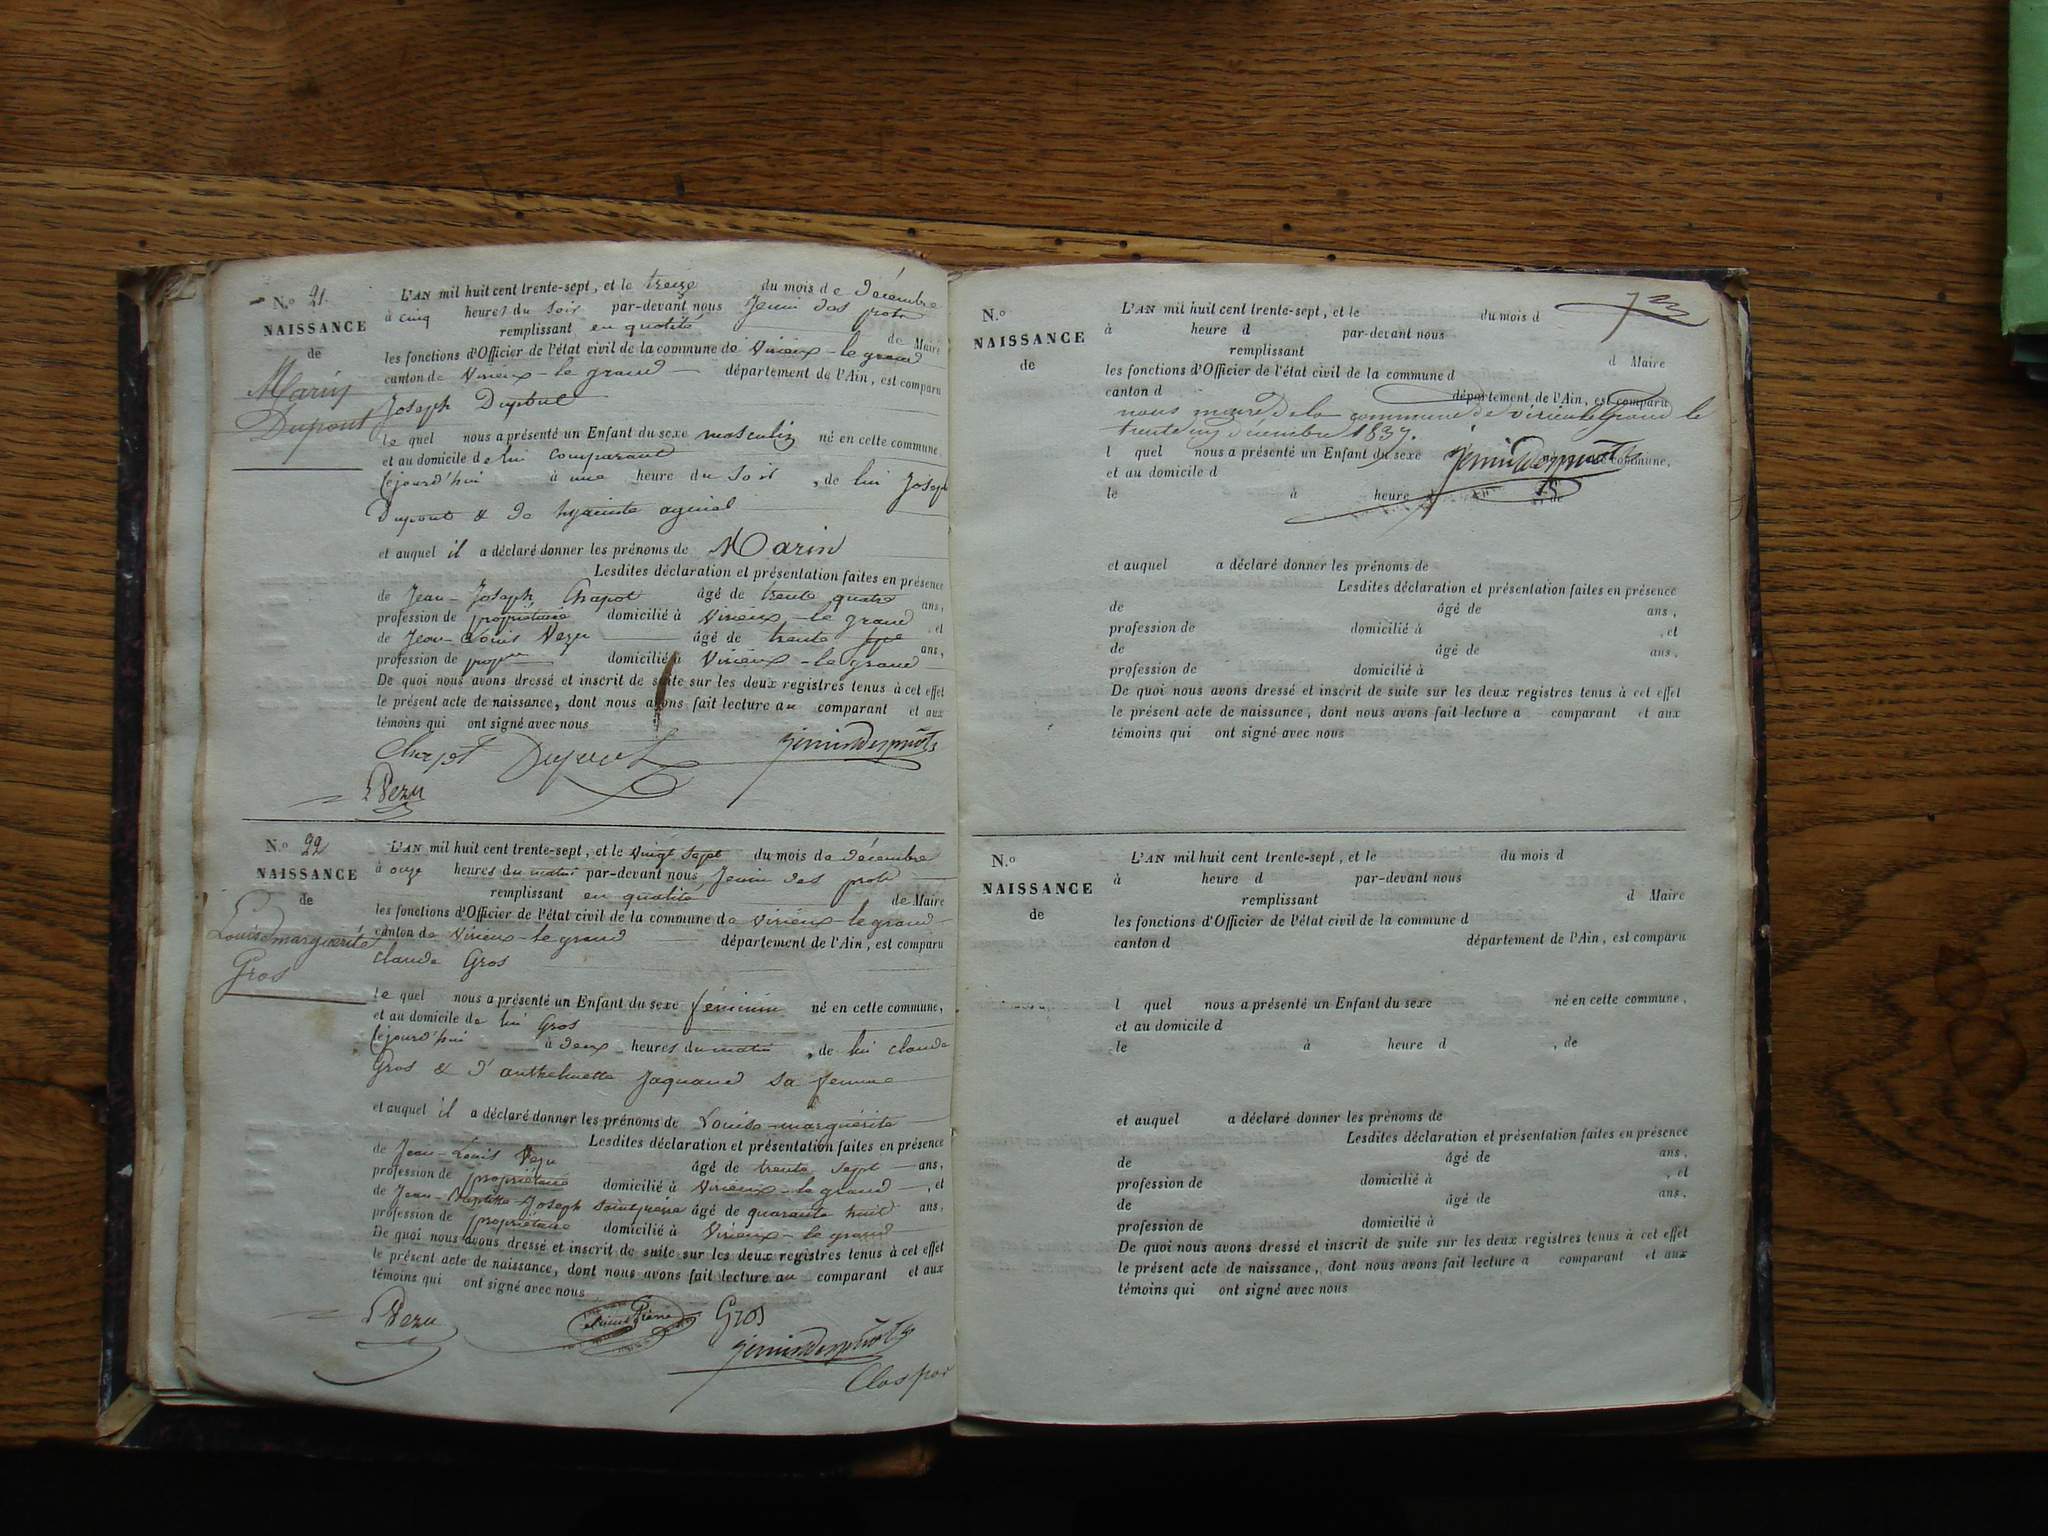 N.o 21.
NAISSANCE
de
Marin
Dupont
L'AN mil huit cent trente-sept, et le treize du mois de décembre
à cinq heures du soir par-devant nous Jenin des prots
remplissant en qualité de Maire
les fonctions d'Officier de l'état civil de la commune de Virieux-le grand
canton de Virieux-le grand département de l'Ain, est comparu
Joseph Dupont
le quel nous a présenté un Enfant du sexe masculin né en cette commune,
et au domicile de lui comparant
cejourd'hui à une heure du soir, de lui Joseph
Dupont & de hyacinte
et auquel il a déclaré donner les prénoms de Marin
Lesdites déclaration et présentation faites en présence
de Jean-Joseph Chapot âgé de trente quatre ans,
profession de propriétaire domicilié à Virieux-le grand, et
de Jean-Louis Vezu âgé de trente sept ans,
profession de domicilié à Virieux-le grand
De quoi nous avons dressé et inscrit de suite sur les deux registres tenus à cet effet
le présent acte de naissance, dont nous avons fait lecture au comparant et aux
témoins qui ont signé avec nous
Chapot Dupont Jenindesprots
L Vezu
N.o 22
NAISSANCE
de
Louise marguerite
Gros
L'AN mil huit cent trente-sept, et le vingt sept du mois de décembre
à onze heures du matin par-devant nous Jenin des prots
remplissant en qualité de Maire
les fonctions d'Officier de l'état civil de la commune de Virieux-le grand
canton de Virieux-le grand département de l'Ain, est comparu
Claude Gros
le quel nous a présenté un Enfant du sexe féminin né en cette commune,
et au domicile de lui Gros
cejourd'hui à deux heures du matin, de lui claude
Gros & d'anthelmette Jaquand sa femme
et auquel il a déclaré donner les prénoms de Louise-marguérite
Lesdites déclaration et présentation faites en présence
de Jean-Louis Vezu âgé de trente sept ans,
profession de propriétaire domicilié à Virieux-le grand, et
de Jean-Baptiste-Joseph Saintpierre âgé de quarante huit ans,
profession de propriétaire domicilié à Virieux-le grand
De quoi nous avons dressé et inscrit de suite sur les deux registres tenus à cet effet
le présent acte de naissance, dont nous avons fait lecture au comparant et aux
témoins qui ont signé avec nous
L Vezu Gros
Jenindesprots
Clos par
N.o
NAISSANCE
de
L'AN mil huit cent trente-sept, et le du mois d
à heure d par-devant nous
remplissant d Maire
les fonctions d'Officier de l'état civil de la commune d
canton d département de l'Ain, est comparu
nous maire de la commune de virieu le Grand le
trente un décembre 1837.
l quel nous a présenté un Enfant du sexe né en cette commune,
Jenindesprots
et au domicile d
le à heure d , de
et auquel a déclaré donner les prénoms de
Lesdites déclaration et présentation faites en présence
de âgé de ans,
profession de domicilié à , et
de âgé de ans,
profession de domicilié à
De quoi nous avons dressé et inscrit de suite sur les deux registres tenus à cet effet
le présent acte de naissance, dont nous avons fait lecture a comparant et aux
témoins qui ont signé avec nous
N.o
NAISSANCE
de
L'AN mil huit cent trente-sept, et le du mois d
à heure d par-devant nous
remplissant d Maire
les fonctions d'Officier de l'état civil de la commune d
canton d département de l'Ain, est comparu
l quel nous a présenté un Enfant du sexe né en cette commune,
et au domicile d
le à heure d , de
et auquel a déclaré donner les prénoms de
Lesdites déclaration et présentation faites en présence
de âgé de ans,
profession de domicilié à , et
de âgé de ans,
profession de domicilié à
De quoi nous avons dressé et inscrit de suite sur les deux registres tenus à cet effet
le présent acte de naissance, dont nous avons fait lecture a comparant et aux
témoins qui ont signé avec nous